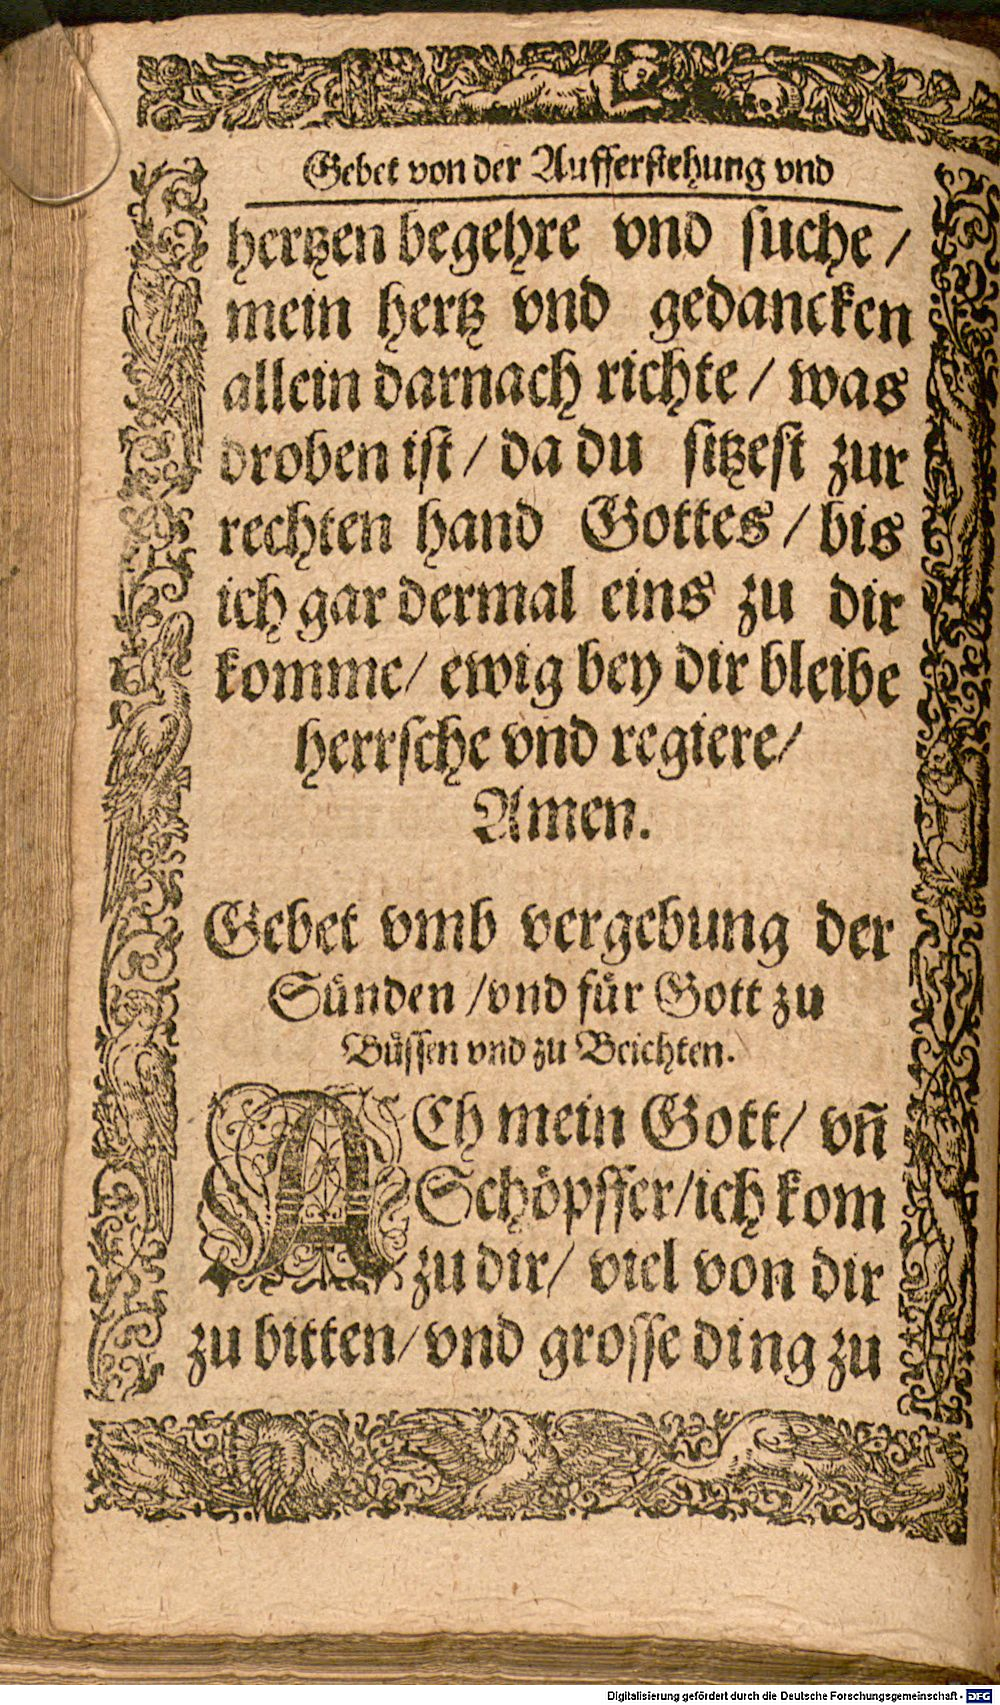 Gebet von der Aufferstehung vnd
hertzen begehre vnd suche /
mein hertz vnd gedancken
allein darnach richte / was
droben ist / da du sitzest zur
rechten hand Gottes / bis
ich gar dermal eins zu dir
komme / ewig bey dir bleibe
herrsche vnd regiere /
Amen.
Gebet vmb vergebung der
Sünden / vnd für Gott zu
Büssen vnd zu Beichten.
ACh mein Gott / vn̄
Schöpffer / ich kom
zu dir / viel von dir
zu bitten / vnd grosse ding zu
Digitalisierung gefördert durch die Deutsche Forschungsgemeinschaft - DFG